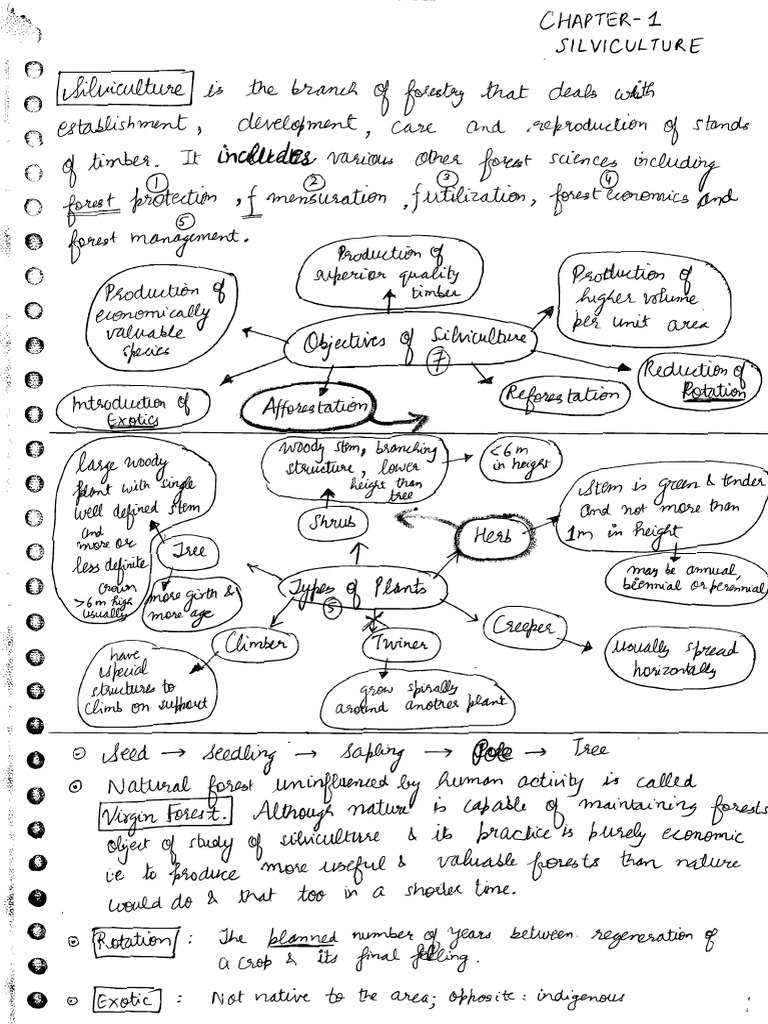 CHAPTER-1
SILVICULTURE
Silviculture is the branch of forestry that deals with
establishment, development, care and reproduction of stands
of timber. It includes various other forest sciences including
① ② ③ ④
forest protection, f mensuration, f utilization, forest economics and
⑤
forest management.
Production of
superior quality
timber
Production of
economically
valuable
species
Production of
higher volume
per unit area
Objectives of Silviculture
⑦
Reduction of
Rotation
Introduction of
Exotics
Afforestation
Reforestation
large woody
plant with single
well defined stem
and
more or
less definite
crown
>6m high
usually
woody stem, branching
structure, lower
height than
tree
<6m
in height
Shrub
Herb
stem is green & tender
and not more than
1m in height
may be annual,
biennial or perennial
Tree
more girth &
more age
Types of Plants
⑤
Climber
Twiner
Creeper
usually spread
horizontally
have
special
structures to
climb on support
grow spirally
around another plant
Seed → seedling → sapling → Pole → Tree
Natural forest uninfluenced by human activity is called
Virgin Forest. Although nature is capable of maintaining forests
object of study of silviculture & its practice is purely economic
i.e to produce more useful & valuable forests than nature
would do & that too in a shorter time.
Rotation : The planned number of years between regeneration of
a crop & its final felling.
Exotic : Not native to the area; opposite: indigenous